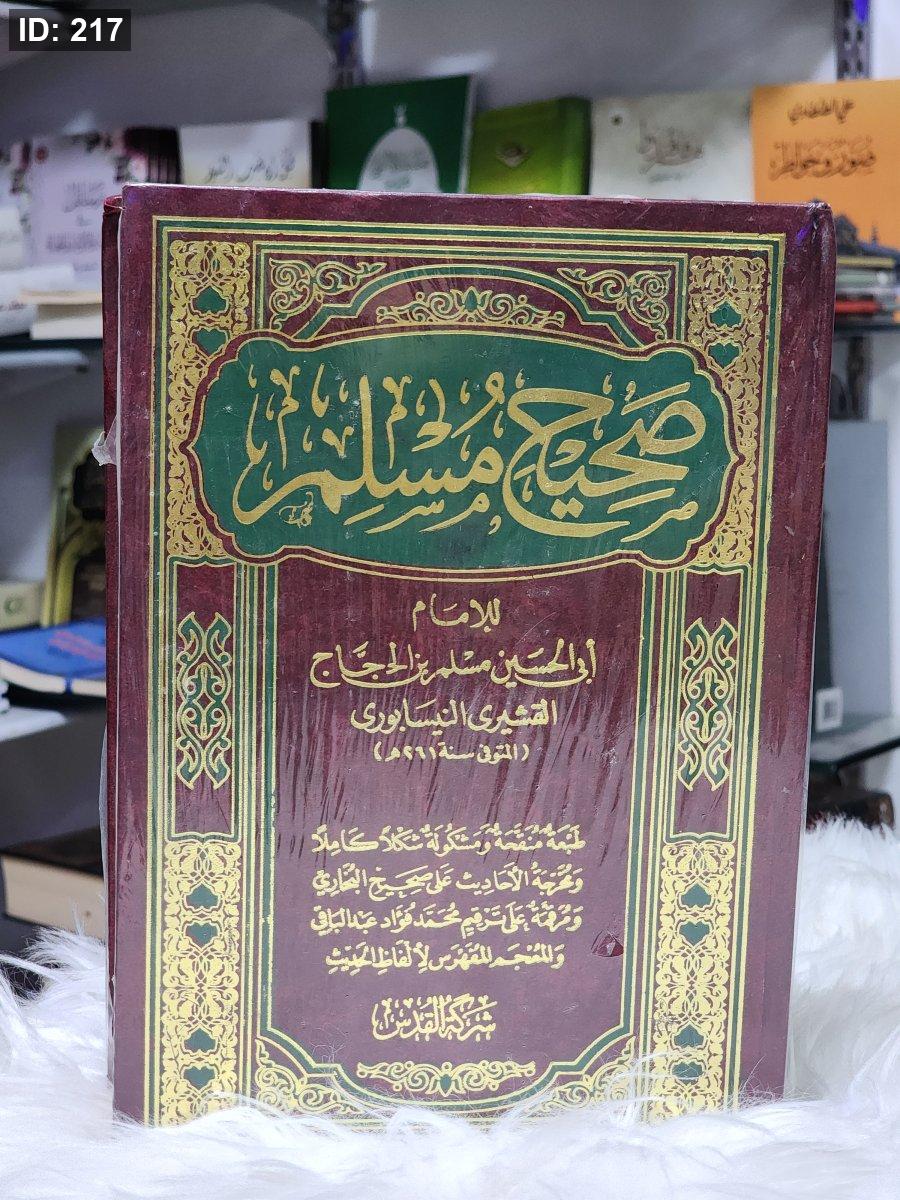 ID: 217
علي الطنطاوي
صور وخواطر
صَحِيحُ مُسْلِم
للإمَام
أبي الحسَين مسْلم بن الحجَّاج
القشيري النيسَابوري
(المتوفى سنة ٢٦١هـ)
طَبْعَةٌ مُنَقَّحَةٌ وَمَشكُولَةٌ شَكْلاً كَامِلاً
وَمُخَرَّجَةُ الأَحَادِيث عَلى صَحِيحِ البُخَارِي
وَمُرَقَّمَةٌ عَلَى تَرقِيمِ مُحَمَّد فُؤاد عَبد البَاقي
وَالمُعْجَم المُفَهْرَس لِألفَاظِ الحَدِيثِ
شَركة القُدس